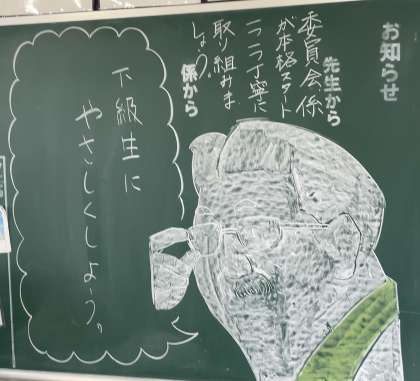 お知らせ
先生から
委員会係
が本格スタート
一つ一つ丁寧に
取り組みま
しょう。
係から
下級生に
やさしくしよう。